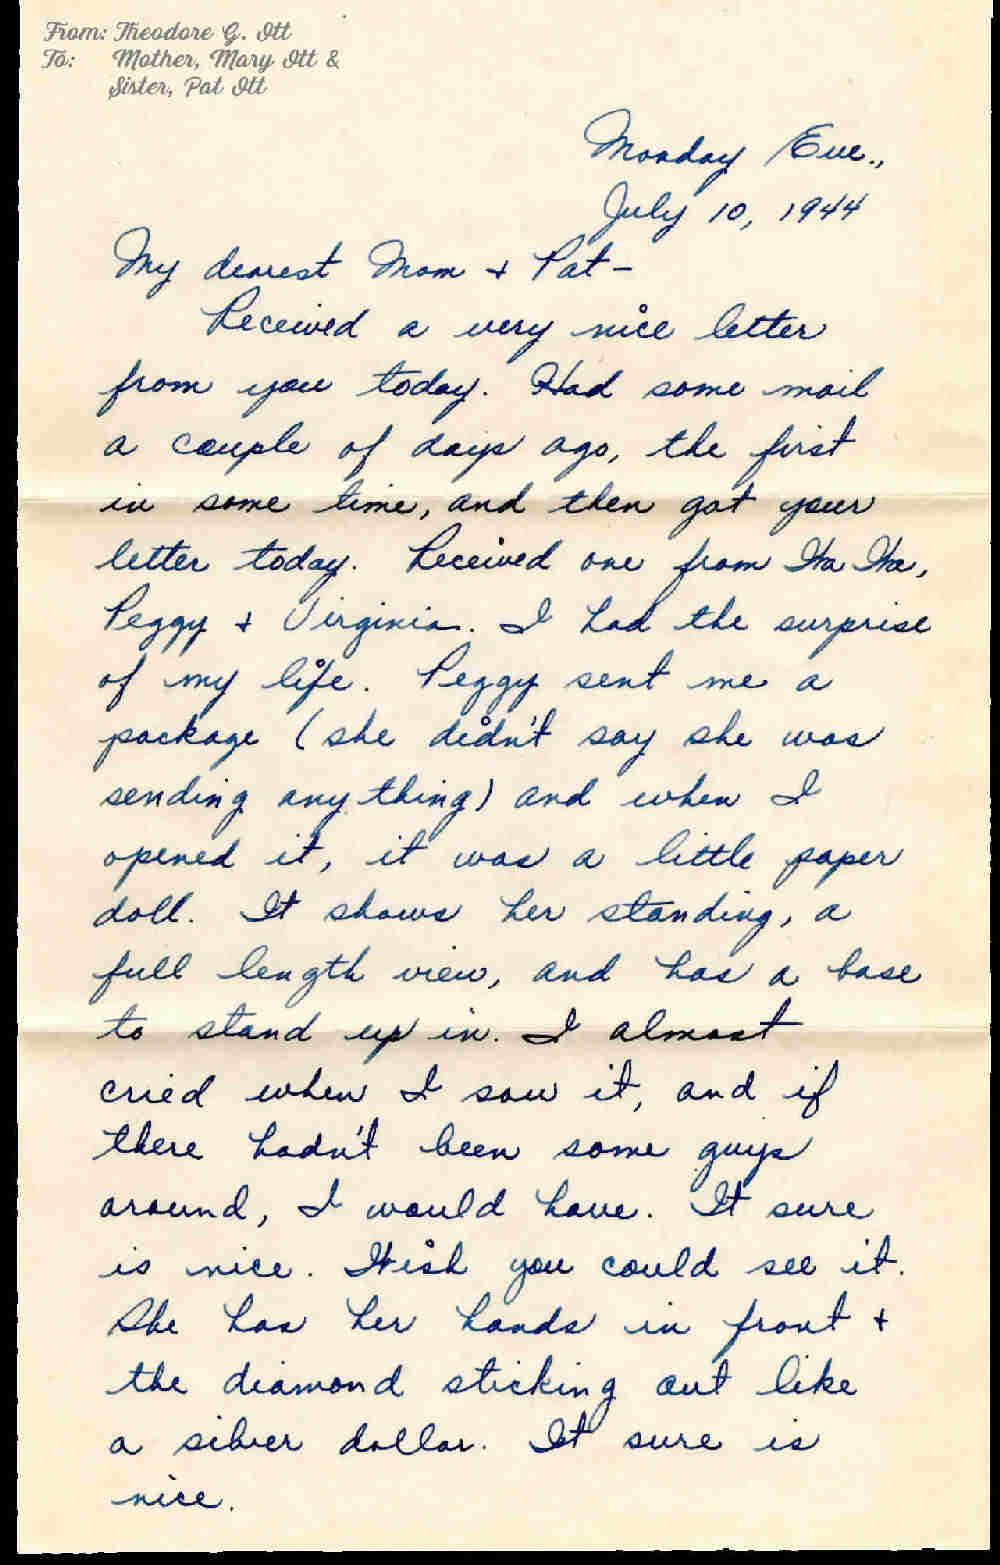 From: Theodore G. Ott
To: Mother, Mary Ott &
Sister, Pat Ott
Monday Eve.,
July 10, 1944
My dearest Mom + Pat-
Received a very nice letter
from you today. Had some mail
a couple of days ago, the first
in some time, and then got your
letter today. Received one from
Peggy + Virginia. I had the surprise
of my life. Peggy sent me a
package (she didn't say she was
sending anything) and when I
opened it, it was a little paper
doll. It shows her standing, a
full length view, and has a base
to stand up in. I almost
cried when I saw it, and if
there hadn't been some guys
around, I would have. It sure
is nice. Wish you could see it.
She has her hands in front +
the diamond sticking out like
a silver dollar. It sure is
nice.